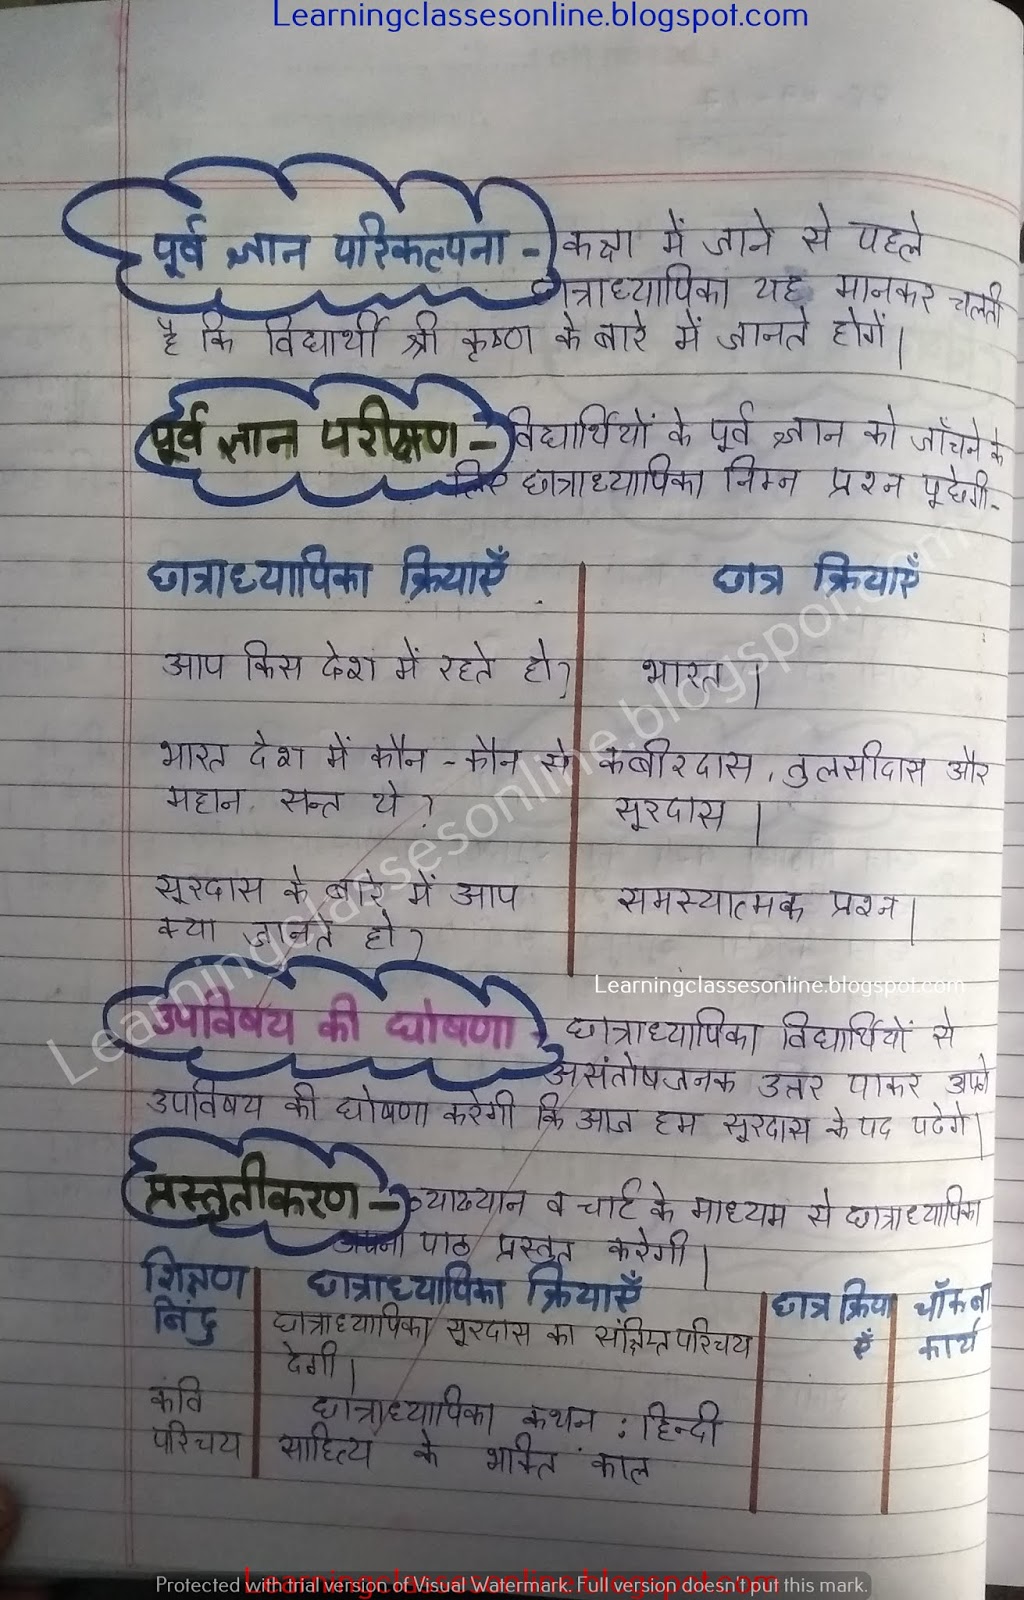 Learningclassesonline.blogspot.com
पूर्व ज्ञान परिकल्पना - कक्षा में जाने से पहले
छात्राध्यापिका यह मानकर चलती
है कि विद्यार्थी श्री कृष्ण के बारे में जानते होगें।
पूर्व ज्ञान परीक्षण - विद्यार्थियों के पूर्व ज्ञान को जाँचने के
लिए छात्राध्यापिका निम्न प्रश्न पूछेगी-
छात्राध्यापिका क्रियाएँ छात्र क्रियाएँ
आप किस देश में रहते हो? भारत।
भारत देश में कौन - कौन से कबीरदास, तुलसीदास और
महान सन्त थे? सूरदास।
सूरदास के बारे में आप समस्यात्मक प्रश्न।
क्या जानते हो?
Learningclassesonline.blogspot.com
Learningclassesonline.blogspot.com
उपविषय की घोषणा - छात्राध्यापिका विद्यार्थियों से
असंतोषजनक उत्तर पाकर अपने
उपविषय की घोषणा करेगी कि आज हम सूरदास के पद पढेगे।
प्रस्तुतीकरण - व्याख्यान व चार्ट के माध्यम से छात्राध्यापिका
अपना पाठ प्रस्तुत करेगी।
शिक्षण छात्राध्यापिका क्रियाएँ छात्र क्रिया चॉक बो
बिंदु छात्राध्यापिका सूरदास का संक्षिप्त परिचय एँ कार्य
देगी।
कवि छात्राध्यापिका कथन : हिन्दी
परिचय साहित्य के भक्ति काल
Learningclassesonline.blogspot.com
Protected with trial version of Visual Watermark. Full version doesn't put this mark.